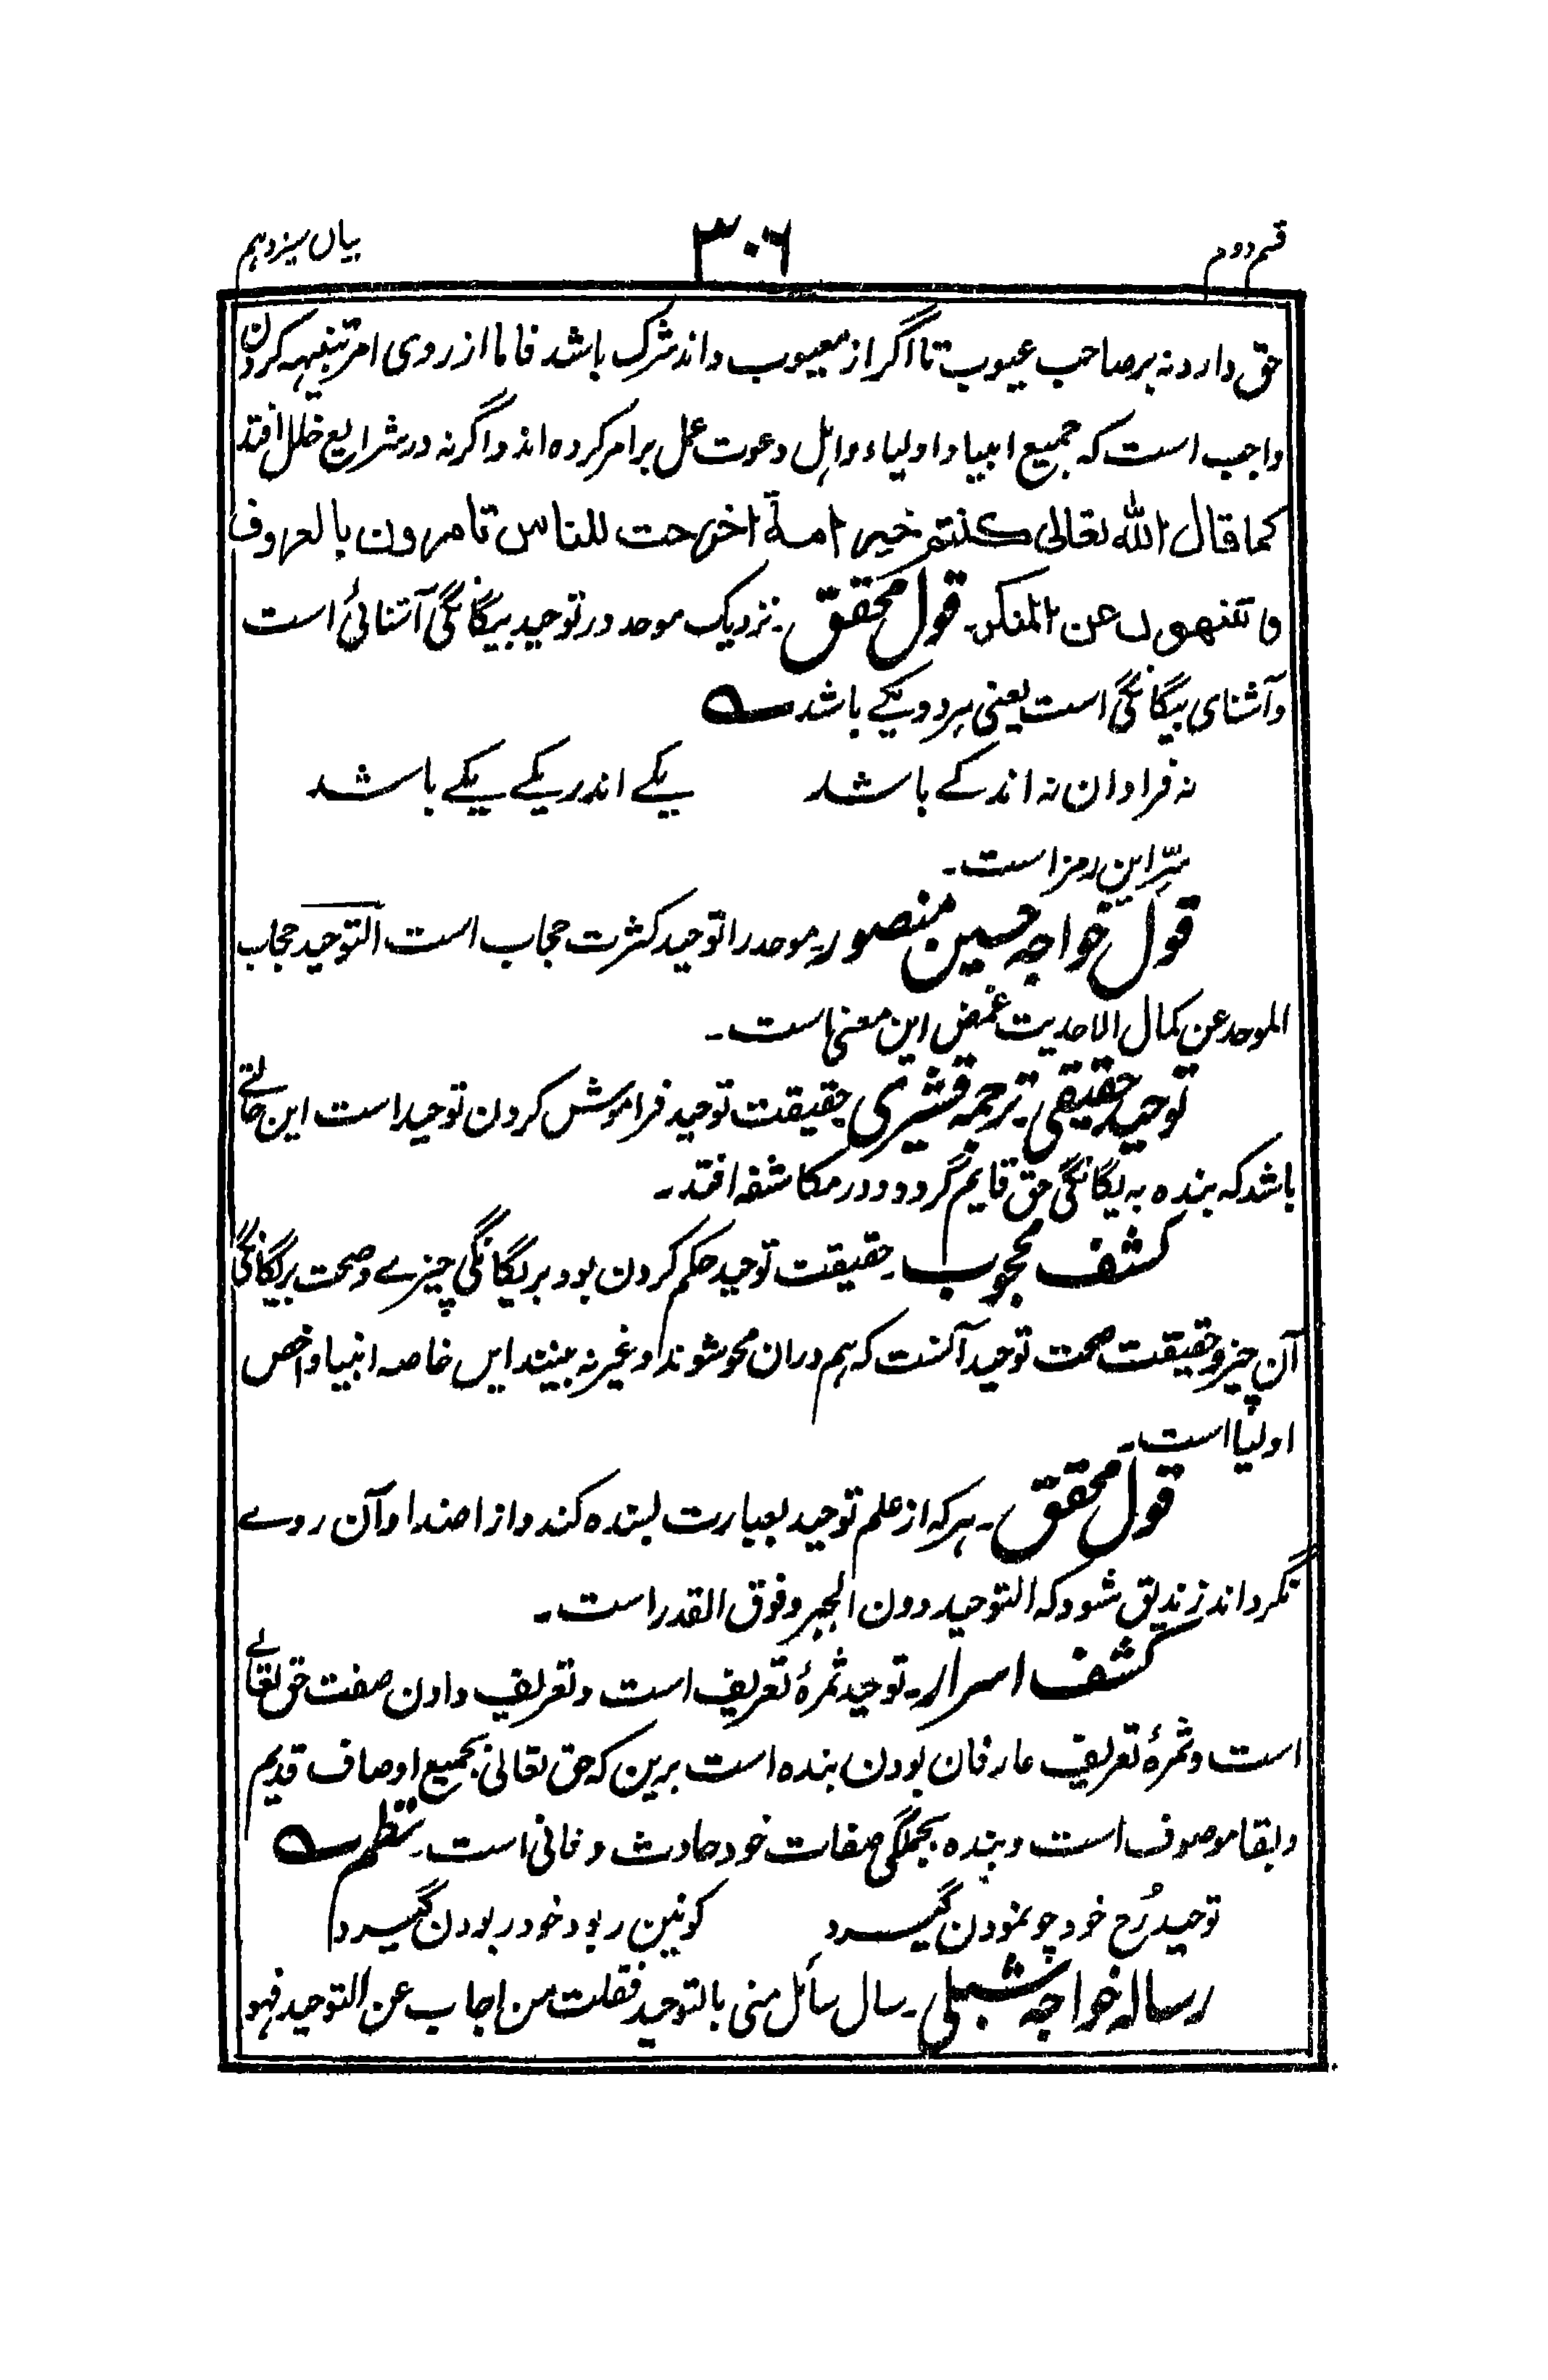 قسم دوم ۳۰۶ بیان سیزدہم
حق دارد نہ بر صاحب عیوب تا اگر از معیوب داند شرک باشد فاما از روی امر تنبیہہ کردن
واجب است کہ جمیع انبیا و اولیاء و اہل دعوت عمل بر امر کردہ اند و اگرنہ در شرایع خلل افتد
کما قال اللہ تعالی کنتم خیر امة اخرجت للناس تامرون بالمعروف
و تنهون عن المنکر۔ قول محقق۔ نزدیک موحد در توحید بیگانگی آشنائی است
و آشنای بیگانگی است یعنی ہر دو یکے باشد
نہ فراوان نہ اندکے باشد یکے اندر یکے یکے باشد
سرّ این رمز است۔
قول خواجہ حسین منصور۔ موحد را توحید کثرت حجاب است التوحید حجاب
الموحد عن کمال الاحدیت غمض این معنی است۔
توحید حقیقی۔ ترجمہ قشیری حقیقت توحید فراموش کردن توحید است این حالتے
باشد کہ بندہ بہ یگانگی حق قایم گردد و در مکاشفہ افتد۔
کشف محجوب۔ حقیقت توحید حکم کردن بود بر یگانگی چیزے و صحت بر یگانگی
آن چیز و حقیقت صحت توحید آنست کہ ہم دران محو شوند او غیر نہ بینند ایں خاصہ انبیا و اخص
اولیا است۔
قول محقق۔ ہر کہ از علم توحید بعبارت بسندہ کند و از اضداد آن روے
نگرداند زندیق شود کہ التوحید دون الجبر و فوق القدر است۔
کشف اسرار۔ توحید ثمرۂ تعریف است و تعریف دادن صفت حق تعالے
است و ثمرۂ تعریف عارفان بودن بندہ است برین کہ حق تعالی بجمیع اوصاف قدیم
و بقا موصوف است و بندہ بجملگی صفات خود حادث و فانی است۔ نظم
توحید رُخ خود چو نمودن گیرد کونین ربود خود ربودن گیرد
رسالہ خواجہ شبلی۔ سال سائل منی بالتوحید فقلت من اجاب عن التوحید فہو